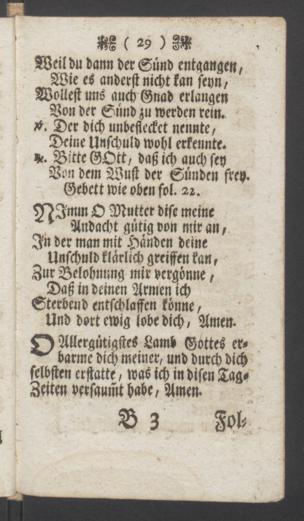 ( 29 )
Weil du dann der Sünd entgangen,
Wie es anderst nicht kan seyn,
Wollest uns auch Gnad erlangen
Von der Sünd zu werden rein.
℣. Der dich unbeflecket nennte,
Deine Unschuld wohl erkennte.
℟. Bitte GOtt, daß ich auch sey
Von dem Wust der Sünden frey.
Gebett wie oben fol. 22.
NImm O Mutter dise meine
Andacht gütig von mir an,
In der man mit Händen deine
Unschuld klärlich greiffen kan,
Zur Belohnung mir vergönne,
Daß in deinen Armen ich
Sterbend entschlaffen könne,
Und dort ewig lobe dich, Amen.
O Allergütigstes Lamb Gottes er-
barme dich meiner, und durch dich
selbsten erstatte, was ich in disen Tag-
Zeiten versaumt habe, Amen.
B 3 Fol-